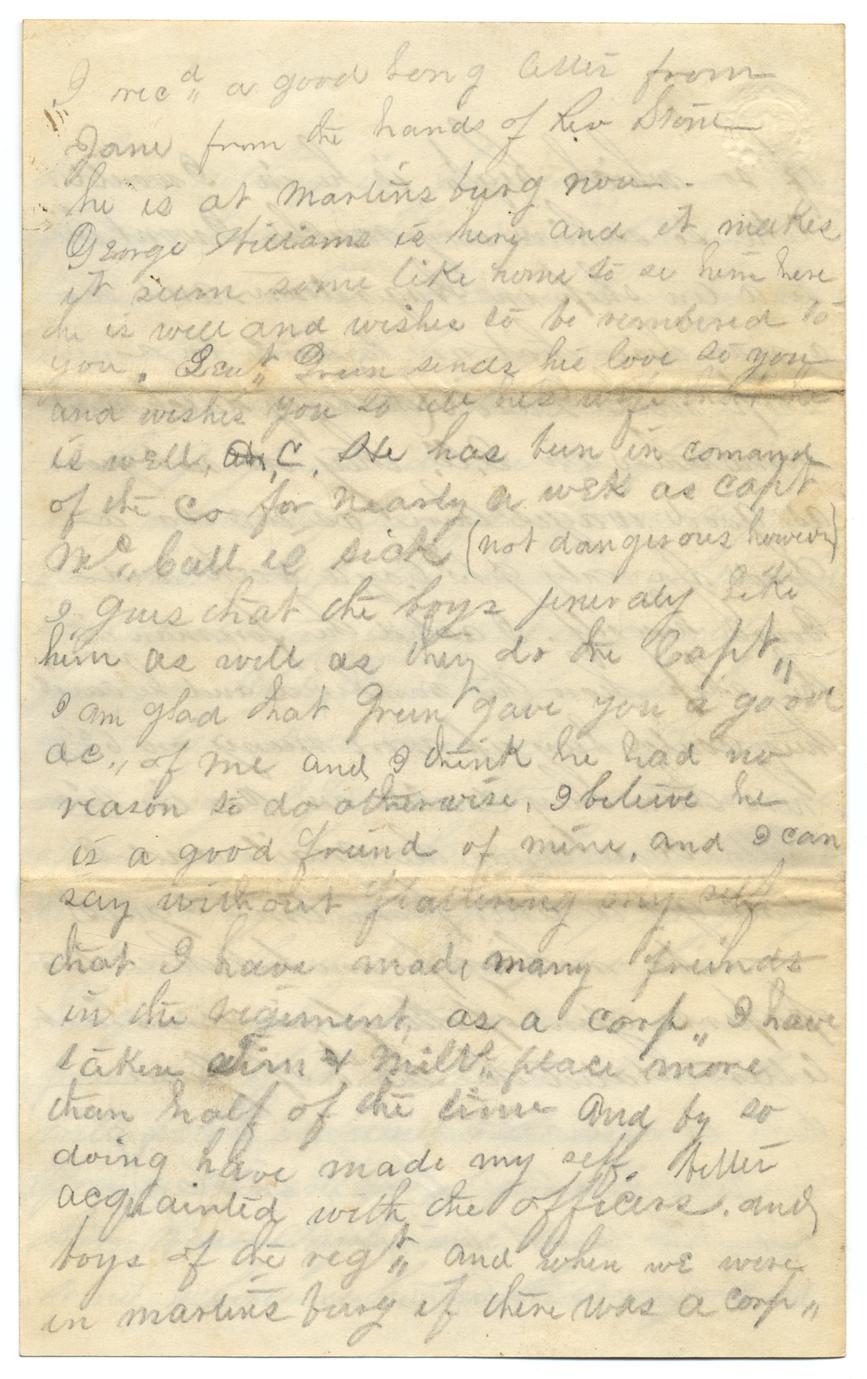 I recd„ a good long letter from
Jane from the hands of Rev Stone
he is at Martins burg now.
George Williams is here and it makes
it seem some like home to se him here
he is well and wishes to be rembered to
you. Leut„ Green sends his love to you
and wishes you to tell his wife that he
is well, &c, C. He has been in comand
of the Co for nearly a wek as Capt
Mc„ Call is sick (not dangerous however)
I gues that the boys jeneraly like
him as well as they do the Capt„
I am glad that Green gave you a good
ac„ of me and I think he had no
reason to do otherwise, I beleive he
is a good freind of mine, and I can
say without flattering my self
that I have made many freinds
in the regiment, as a corp„ I have
taken Jim & Milts„ place more
than half of the time and by so
doing have made my self better
acquainted with the officers. and
boys of the regt„ and when we were
in martins burg if there was a corp„